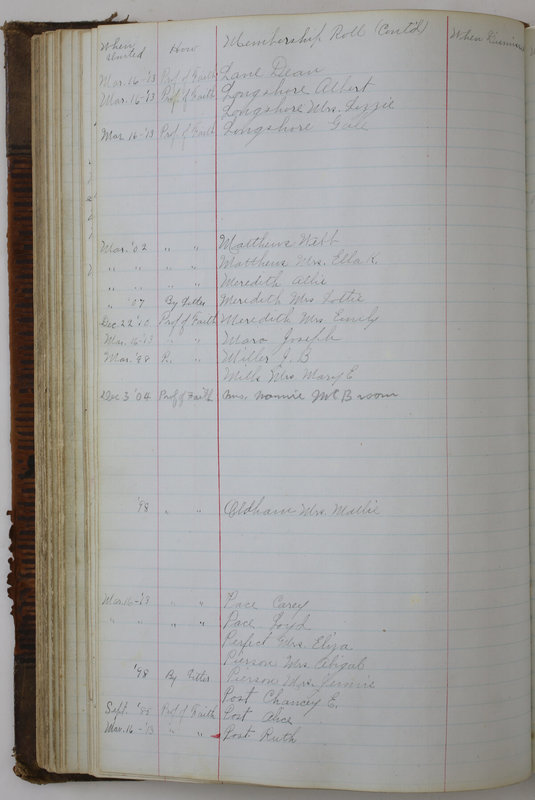 When United How Membership Roll (Cont'd) When
Mar. 16-'13 Prof. of Faith Lane Dean
Mar. 16-'13 Prof. of Faith Longshore Albert
Longshore Mrs. Lizzie
Mar 16-'13 Prof. of Faith Longshore Gale
Mar. '02 " " Matthews Webb
" " " " Matthews Mrs. Ella K.
" " " " Meredith Allie
" '07 By Letter Meredith Mrs Lottie
Dec 22 '10 Prof of Faith Meredith Mrs Emily
Mar. 16-'13 " " Joseph
Mar. '98 R. " Miller J. B
Mills Mrs. Mary E
Dec 3 '04 Prof of Faith Mrs. Nannie McBroom
'98 " " Oldham Mrs. Mallie
Mar. 16-'13 " " Pace Carey
" " " " Pace Loyd
Perfect Mrs. Eliza
Pierson Mrs. Abigal
'98 By Letter Pierson Mrs.
Post Chancey E.
Sept. '85 Prof of Faith Post Alice
Mar. 16-'13 " " Post Ruth